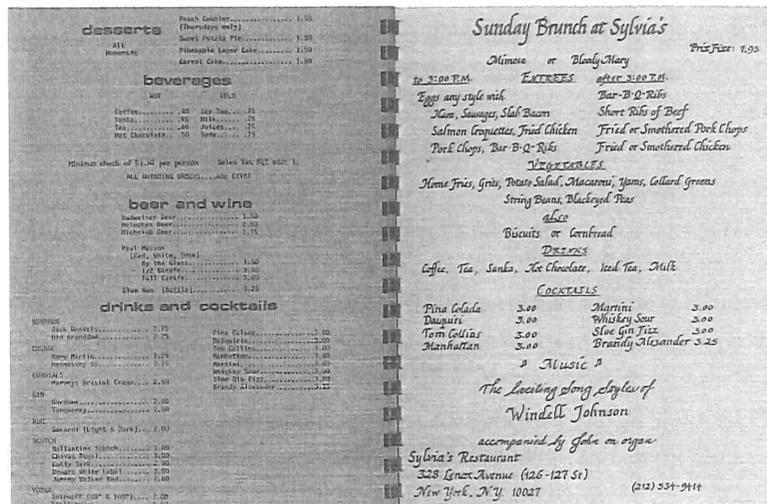 desserts
All
Homemade
Peach Cobbler 1.50
(Thursdays only)
Sweet Potato Pie 1.50
Pineapple Layer Cake 1.50
Carrot Cake 1.50
beverages
HOT COLD
Coffee .60 Ice Tea .75
Sanka .65 Milk .75
Tea .60 Juices .75
Hot Chocolate .50 Soda .75
Minimum check of per person Sales Tax
ALL OUTGOING ORDERS EXTRA
beer and wine
Budweiser Beer 1.50
Heineken Beer 2.00
Michelob Beer 1.75
Paul Masson
(Red, White, Rose)
By the Glass 1.50
1/2 Carafe
Full Carafe
Blue Nun (Bottle)
drinks and cocktails
BOURBON
Jack Daniels 2.75
Old Granddad
COGNAC
Remy Martin
Hennessy
CORDIALS
Harveys Bristol Cream 2.50
GIN
Gordons
Tanqueray
RUM
Bacardi (Light & Dark)
SCOTCH
Ballantine Scotch
Chivas Regal
Cutty Sark
Dewars White Label
Johnny Walker Red
VODKA
Smirnoff
Pina Colada 3.00
Daiquiris 3.00
Tom Collins 3.00
Manhattan 3.00
Martini 3.00
Whiskey Sour 3.00
Sloe Gin Fizz 3.00
Brandy Alexander 3.25
Sunday Brunch at Sylvia's
Prix Fixe: 7.95
Mimosa or Bloody Mary
to 3:00 P.M. ENTREES after 3:00 P.M.
Eggs any style with Bar-B-Q-Ribs
Ham, Sausages, Slab Bacon Short Ribs of Beef
Salmon Croquettes, Fried Chicken Fried or Smothered Pork Chops
Pork Chops, Bar-B-Q-Ribs Fried or Smothered Chicken
VEGETABLES
Home Fries, Grits, Potato Salad, Macaroni, Yams, Collard Greens
String Beans, Blackeyed Peas
also
Biscuits or Cornbread
DRINKS
Coffee, Tea, Sanka, Hot Chocolate, Iced Tea, Milk
COCKTAILS
Pina Colada 3.00 Martini 3.00
Daiquiri 3.00 Whiskey Sour 3.00
Tom Collins 3.00 Sloe Gin Fizz 3.00
Manhattan 3.00 Brandy Alexander 3.25
♫ Music ♫
The Exciting Song Styles of
Windell Johnson
accompanied by John on organ
Sylvia's Restaurant
328 Lenox Avenue (126-127 St)
New York, N.Y. 10027 (212) 534-9414